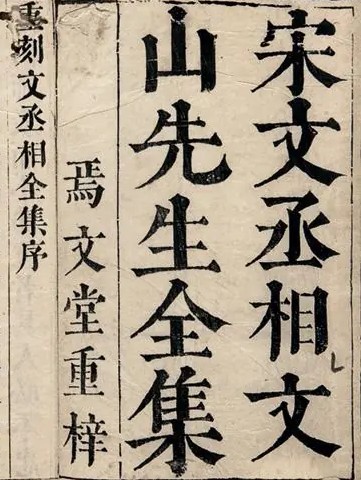 宋文丞相文
山先生全集
焉文堂重梓
重刻文丞相全集序